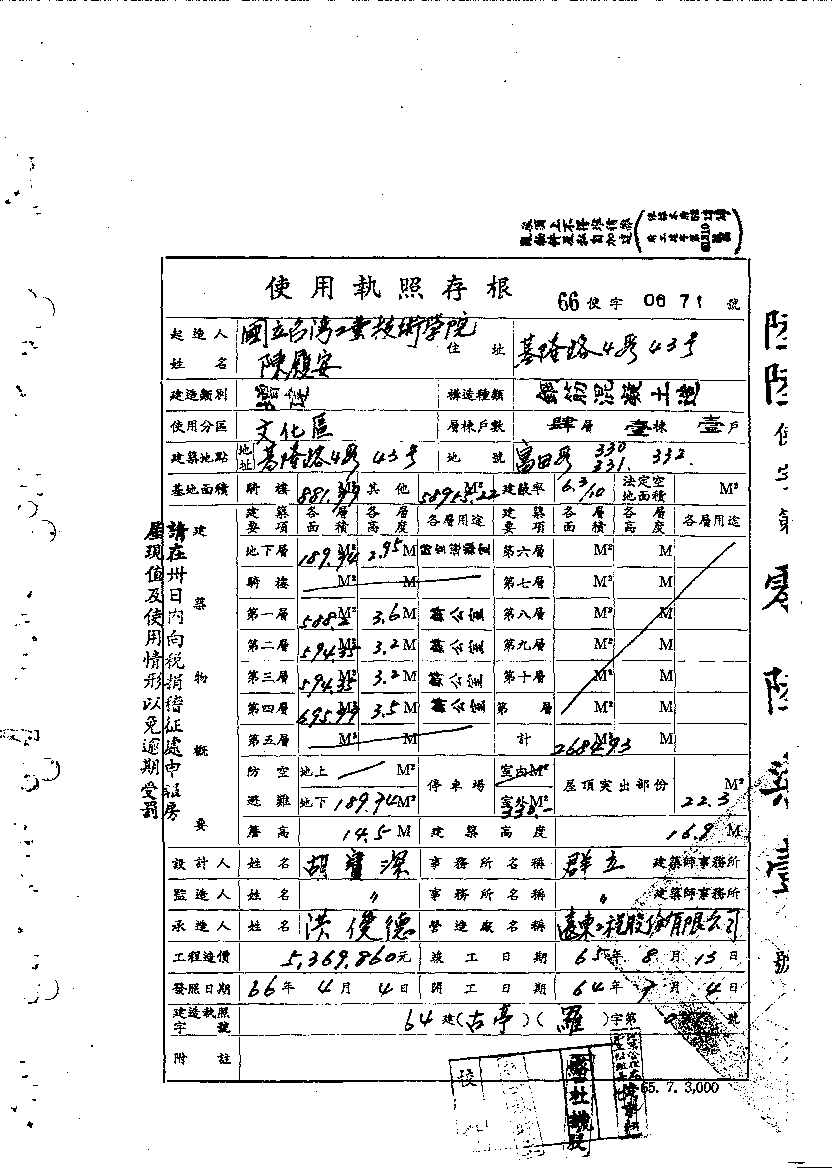 使用執照存根
66 使字 0671 號
起造人 姓名 國立台湾工業技術學院 陳履安 住址 基隆路4段43号
建造類別 構造種類 鋼筋混凝土造
使用分區 文化區 層棟戶數 肆層 壹棟 壹戶
建築地點 地址 基隆路4段43号 地號 富田段 330 331 332
基地面積 騎樓 M² 其他 M² 建蔽率 6.3/10 法定空地面積 M²
建築物概要
建築要項 各層面積 各層高度 各層用途 建築要項 各層面積 各層高度 各層用途
地下層 189.74M² 2.95M 第六層 M² M
騎樓 M² M 第七層 M² M
第一層 588.2M² 3.6M 辦公室 第八層 M² M
第二層 594.35M² 3.2M 辦公室 第九層 M² M
第三層 594.35M² 3.2M 辦公室 第十層 M² M
第四層 695.99M² 3.5M 辦公室 第 層 M² M
第五層 M² M 計 2684.93M² M
防空避難 地上 M² 地下 189.74M² 停車場 室內M² 室外M² 屋頂突出部份 22.3M²
簷高 14.5M 建築高度 16.9M
設計人 姓名 胡寶深 事務所名稱 群立 建築師事務所
監造人 姓名 〃 事務所名稱 〃 建築師事務所
承造人 姓名 洪俊德 營造廠名稱 遠東工程股份有限公司
工程造價 5,369,860元 竣工日期 65年8月13日
發照日期 66年4月4日 開工日期 64年9月4日
建造執照字號 64建(古亭)(羅)字第 號
附註
65.7.3,000
請在卅日內向稅捐稽征處申報房
屋現值及使用情形以免逾期受罰
陸陸使字第零陸柒壹號
校